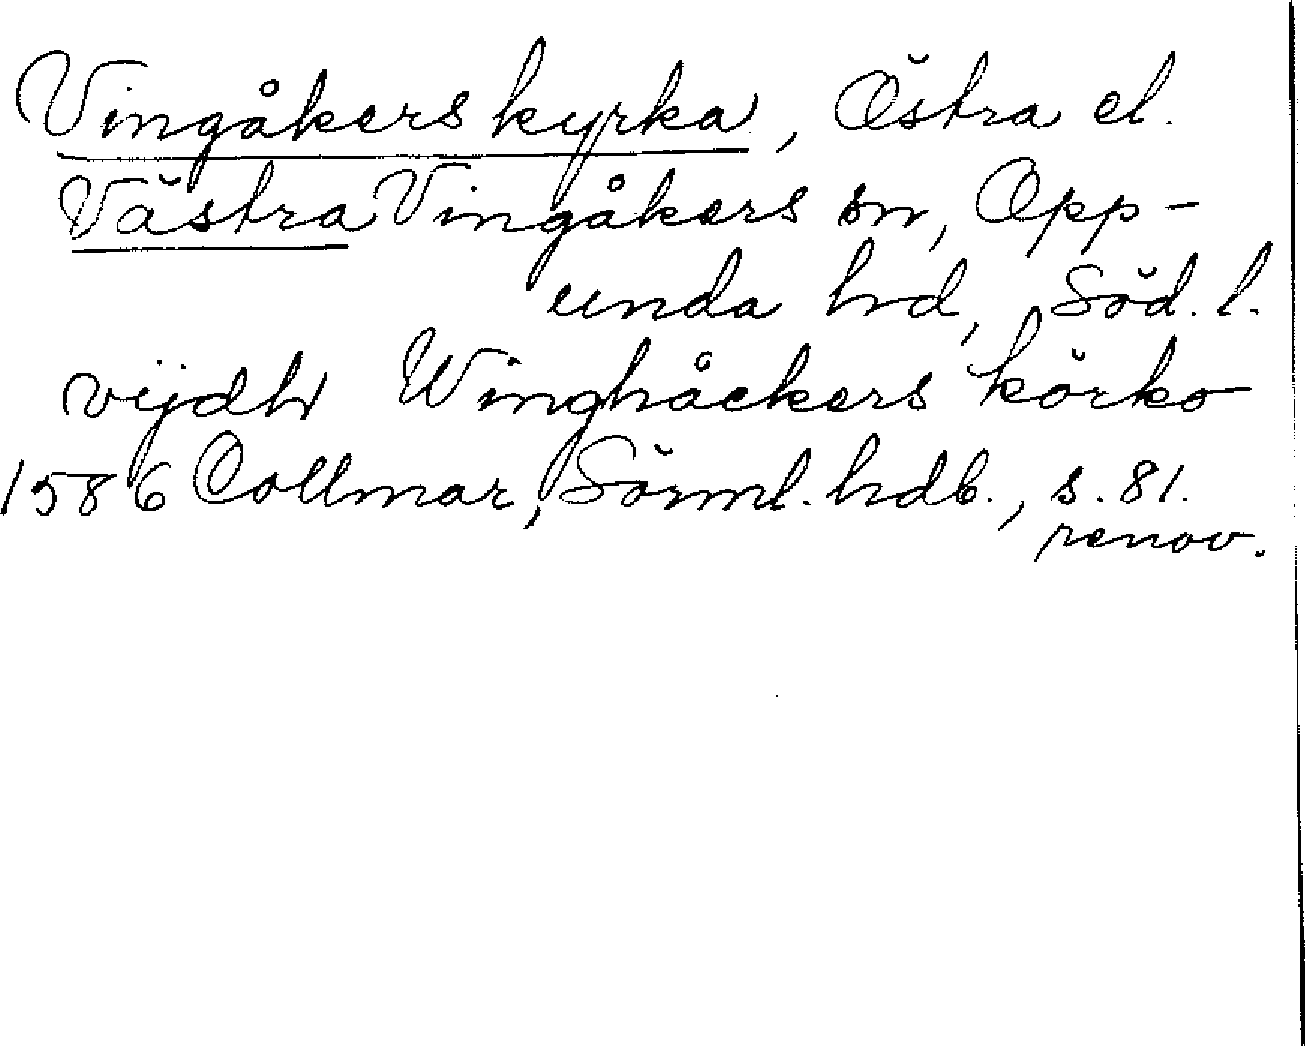 Vingåkers kyrka, Östra el.
Västra Vingåkers sn, Opp-
unda hd, Söd. l.
vijdh Winghåckers körko
1586 Collmar, Sörml. hdb., s. 81.
renov.